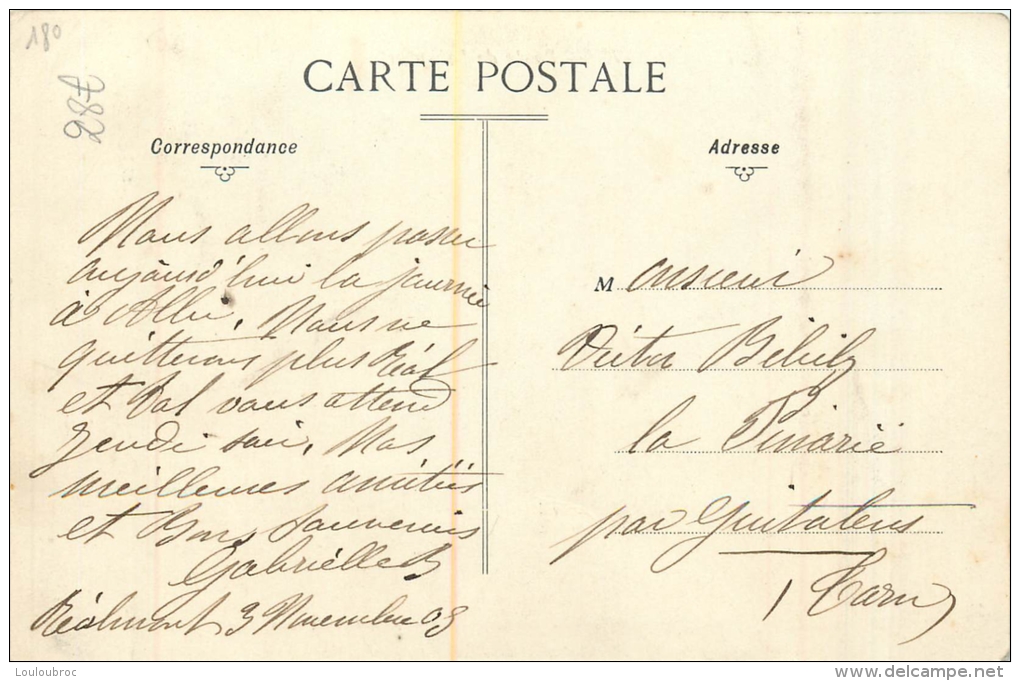 180
28t
CARTE POSTALE
Correspondance
Adresse
Nous allons passer
aujourd'hui la journée
à Albi. Nous ne
quitterons plus Réal
et Val vous attend
Jeudi soir. Nos
meilleures amitiés
et Bons souvenirs
Gabrielle B
Réalmont 3 Novembre 03
Monsieur
Victor
la
par Guitalens
(Tarn)
Louloubroc
www.delcampe.net